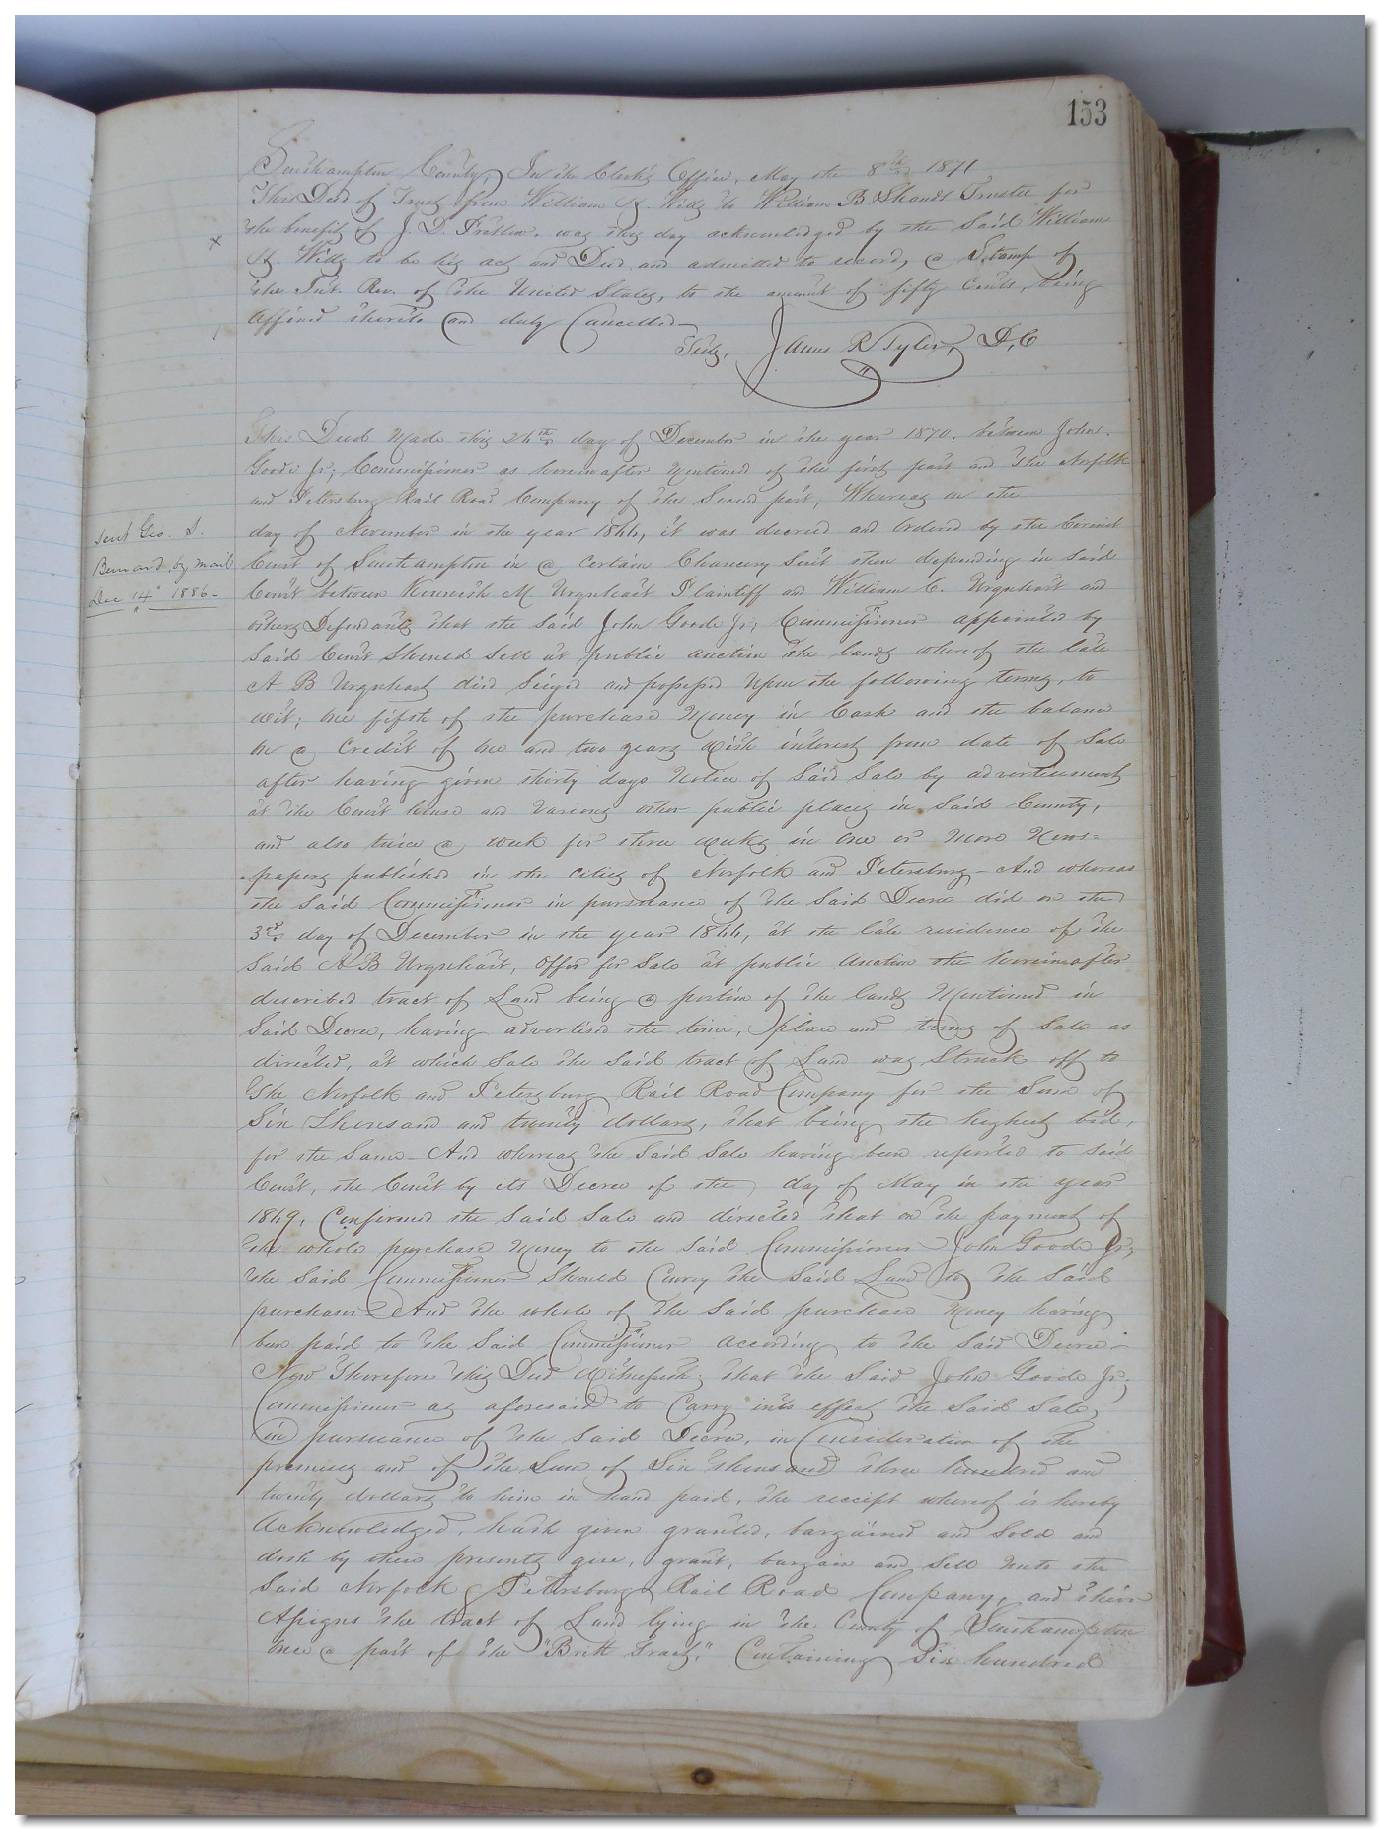 153
Southampton County, In the Clerk's Office, May the 8th 1871
This Deed of Trust from William H. Wills to William B Shands Trustee for
the benefit of J. D. Pretlow. was this day acknowledged by the said William
H Wills to be his act and Deed and admitted to record, a Stamp of
the Int. Rev. of the United States, to the amount of fifty Cents, being
affixed thereto and duly Cancelled—
Teste, James R Tyler, D,C
This Deed Made this day of December in the year 1870. between John
Goode Jr; Commissioner as hereinafter Mentioned of the first part and The Norfolk
and Petersburg Rail Road Company of the Second part, Whereas on the
day of November in the year 1866, it was decreed and Ordered by the Circuit
Sent Geo. S.
Bernard, by mail
Dec 14" 1886-
Court of Southampton in a Certain Chancery Suit then depending in Said
Court between M Urquhart Plaintiff and William C. Urquhart and
others Defendants that the Said John Goode Jr; Commissioner appointed by
Said Court Should Sell at public auction the lands whereof the late
A B Urquhart died Seized and possessed Upon the following terms, to
wit; One fifth of the purchase Money in Cash and the balance
on a Credit of One and two years with interest from date of Sale
after having given thirty days Notice of Said Sale by advertisement
at the Court house and Various other public places in Said County,
and also twice a week for three weeks in One or More News=
papers published in the cities of Norfolk and Petersburg - And whereas
the Said Commissioner in pursuance of the Said Decree did on the
3rd day of December in the year 1866, at the late residence of the
Said A B Urquhart, Offer for Sale at public Auction the hereinafter
described tract of Land being a portion of the lands Mentioned in
Said Decree, having advertised the time, place and terms of Sale as
directed, at which Sale the Said tract of Land was Struck off to
The Norfolk and Petersburg Rail Road Company for the Sum of
Six Thousand and twenty dollars, that being the highest bid,
for the Same - And whereas the Said Sale having been reported to Said
Court, the Court by its Decree of the day of May in the year
1869, Confirmed the Said Sale and directed that on the payment of
the whole purchase Money to the Said Commissioner John Goode Jr;
the Said Commissioner Should Convey the Said Land to the Said
purchaser And the whole of the Said purchase Money having
been paid to the Said Commissioner according to the Said Decree -
Now Therefore this Deed Witnesseth; that the Said John Goode Jr;
Commissioner as aforesaid to Carry into effect the Said Sale,
in pursuance of the Said Decree, in Consideration of the
premises and of the Sum of Six thousand three hundred and
twenty dollars to him in hand paid, the receipt whereof is hereby
Acknowledged, hath given granted, bargained and Sold and
doth by these presents give, grant, bargain and Sell Unto the
Said Norfolk & Petersburg Rail Road Company, and their
Assigns the tract of Land lying in the County of Southampton
a part of the "Britt Tract," Containing Six hundred